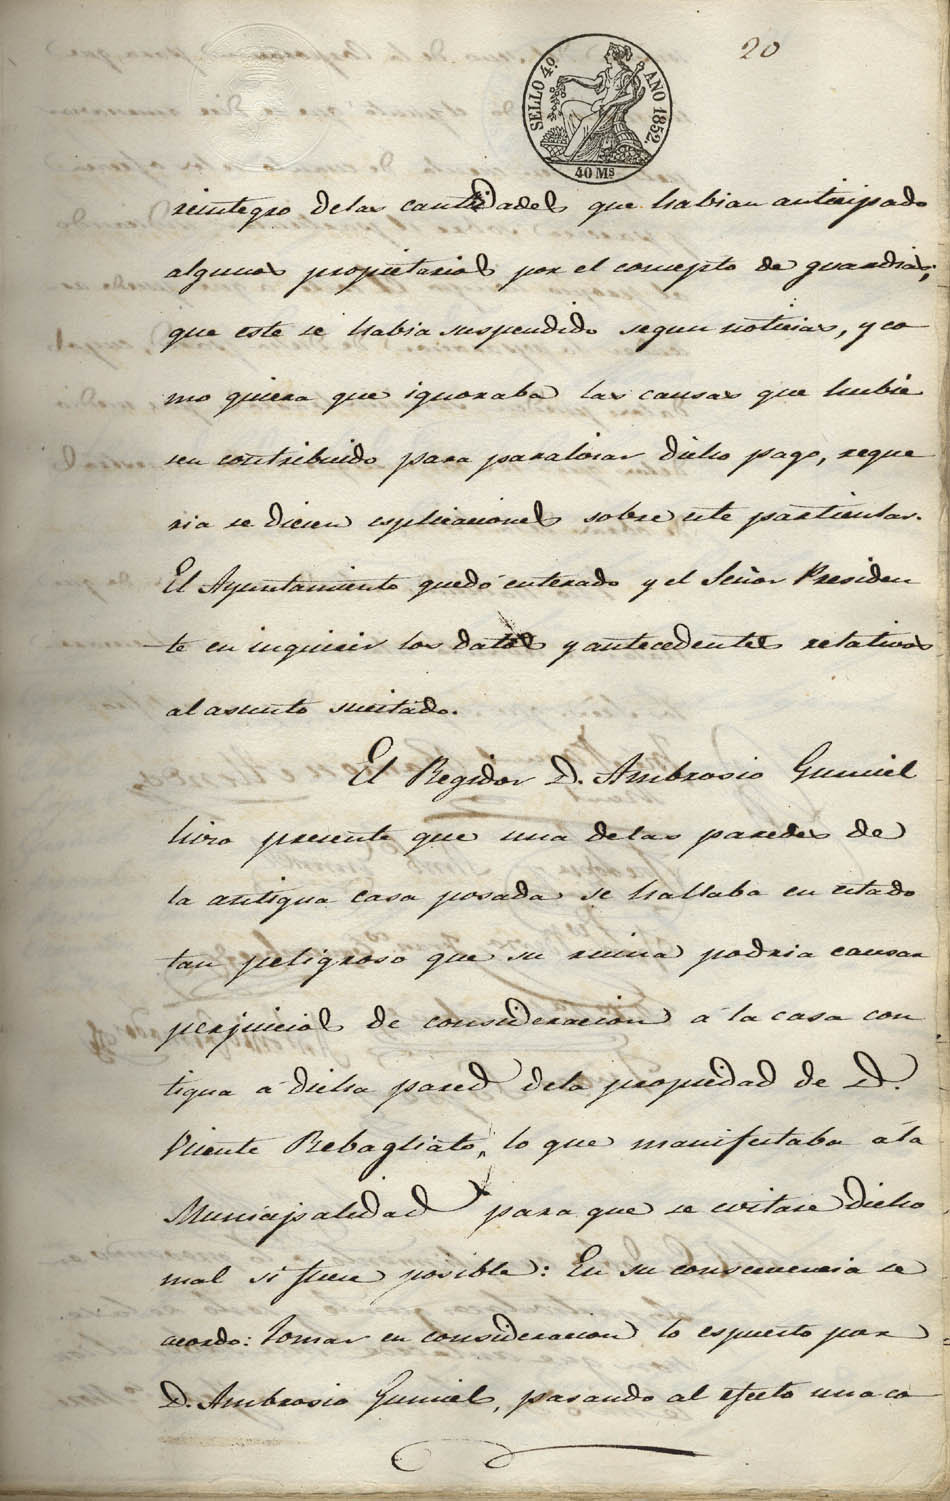 20
SELLO 4.º AÑO 1852.
40 Ms
reintegro delas cantidades que habian anticipado
algunos propietarios por el concepto de guardias;
que este se habia suspendido segun noticias, y co
mo quiera que ignoraba las causas que hubie
sen contribuido para paralizar dicho pago, reque
ria se diesen esplicaciones sobre este particular.
El Ayuntamiento quedó enterado y el Señor Presiden
te en inquirir los datos y antecedentes relativos
al asunto suscitado.
El Regidor D. Ambrosio Gumiel
hizo presente que una delas paredes de
la antigua casa posada se hallaba en estado
tan peligroso que su ruina podria causar
perjuicios de consideracion á la casa con
tigua á dicha pared dela propiedad de D.
Vicente Rebagliato, lo que manifestaba á la
Municipalidad para que se evitase dicho
mal si fuese posible: En su consecuencia se
acordo: tomar en consideracion lo espuesto por
D. Ambrosio Gumiel, pasando al efecto una co